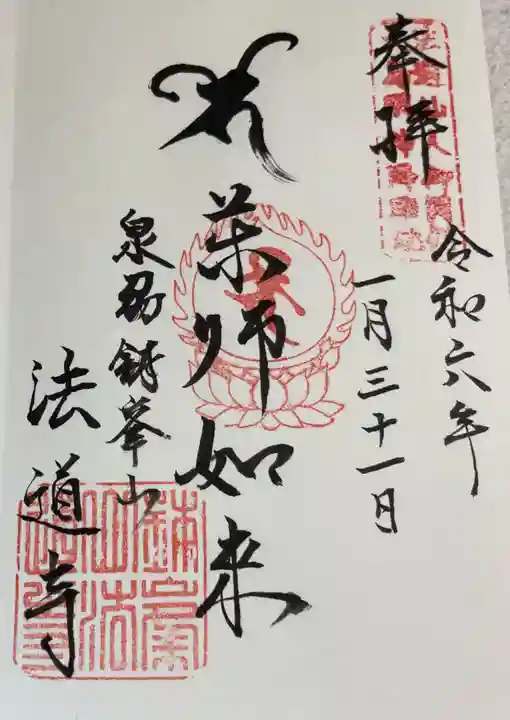 奉拝
令和六年
一月三十一日
薬师如来
泉州鉢峯山
法道寺